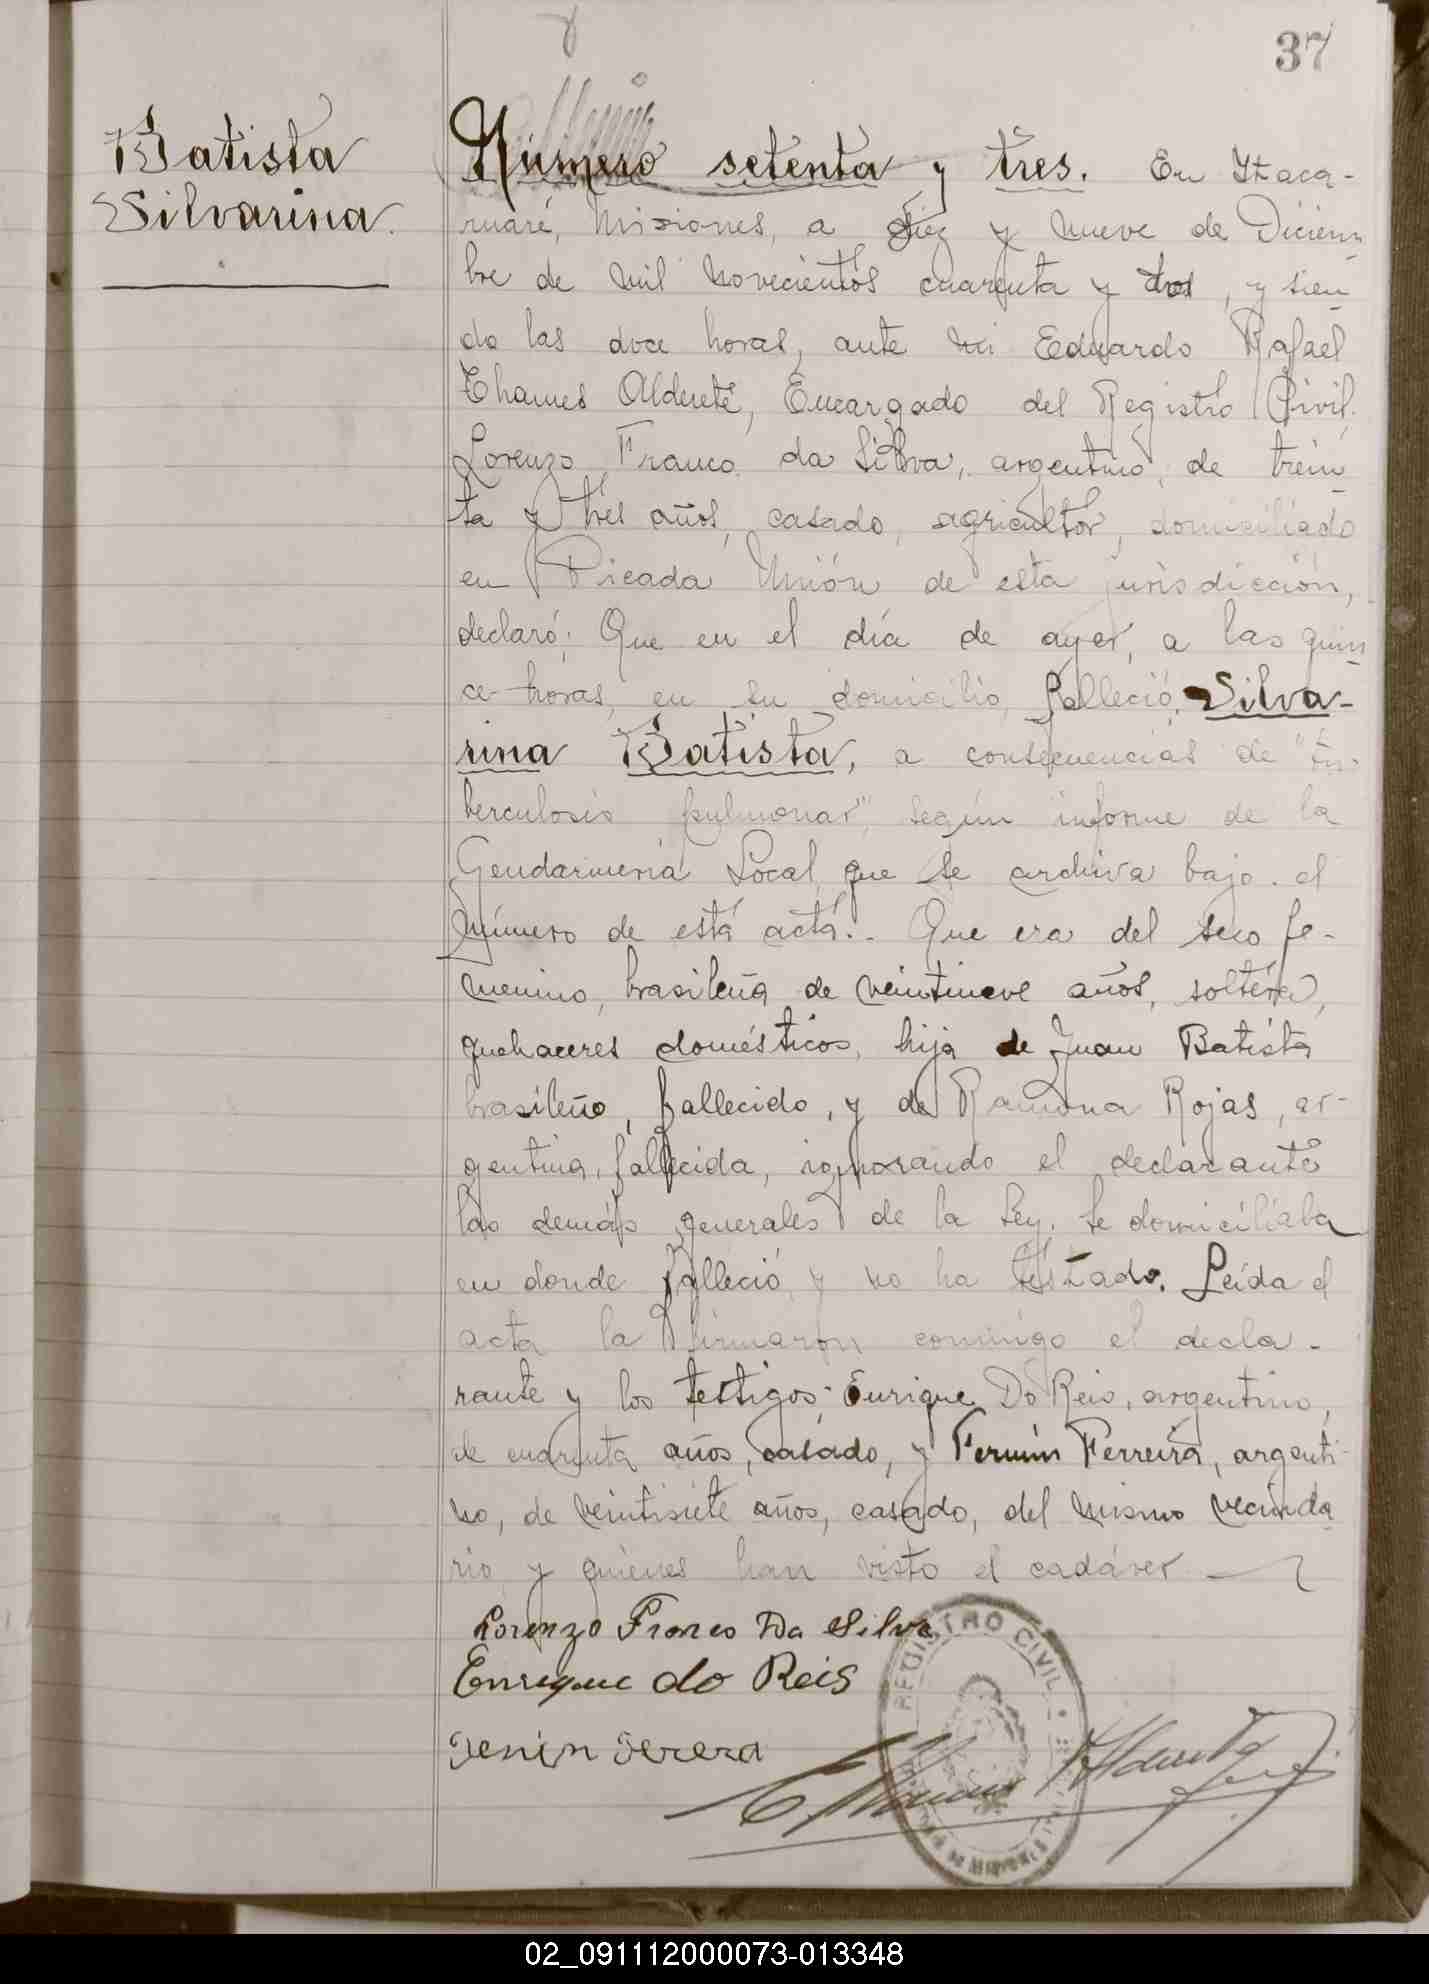 37
Batista
Silvarina.
Número setenta y tres. En Itaca-
ruaré, Misiones, a diez y nueve de Diciem-
bre de mil novecientos cuarenta y tres, y sien-
do las doce horas, ante mi Eduardo Rafael
Thames Alderete, Encargado del Registro Civil,
Lorenzo Franco da Silva, argentino, de trein-
ta y tres años, casado, agricultor, domiciliado
en Picada Unión de esta jurisdicción,
declaró: Que en el día de ayer, a las quin-
ce horas, en su domicilio, falleció, Silva-
rina Batista, a consecuencias de "tu-
berculosis pulmonar", según informe de la
Gendarmeria Local que se archiva bajo el
número de está acta.- Que era del sexo fe-
menino, brasileña de veintinueve años, soltera,
quehaceres domésticos, hija de Juan Batista
brasileño, fallecido, y de Ramona Rojas, ar-
gentina, fallecida, ignorando el declarante
las demás generales de la Ley. Se domiciliaba
en donde falleció y no ha testado. Leída el
acta la firmaron conmigo el decla-
rante y los testigos: Enrique Do Reis, argentino,
de cuarenta años, casado, y Fermin Ferreira, argenti-
no, de veintisiete años, casado, del mismo vecinda-
rio y quienes han visto el cadáver
Lorenzo Franco Da Silva
Enrique do Reis
Fenin Ferera
REGISTRO CIVIL
E Thames Alderete
02_091112000073-013348